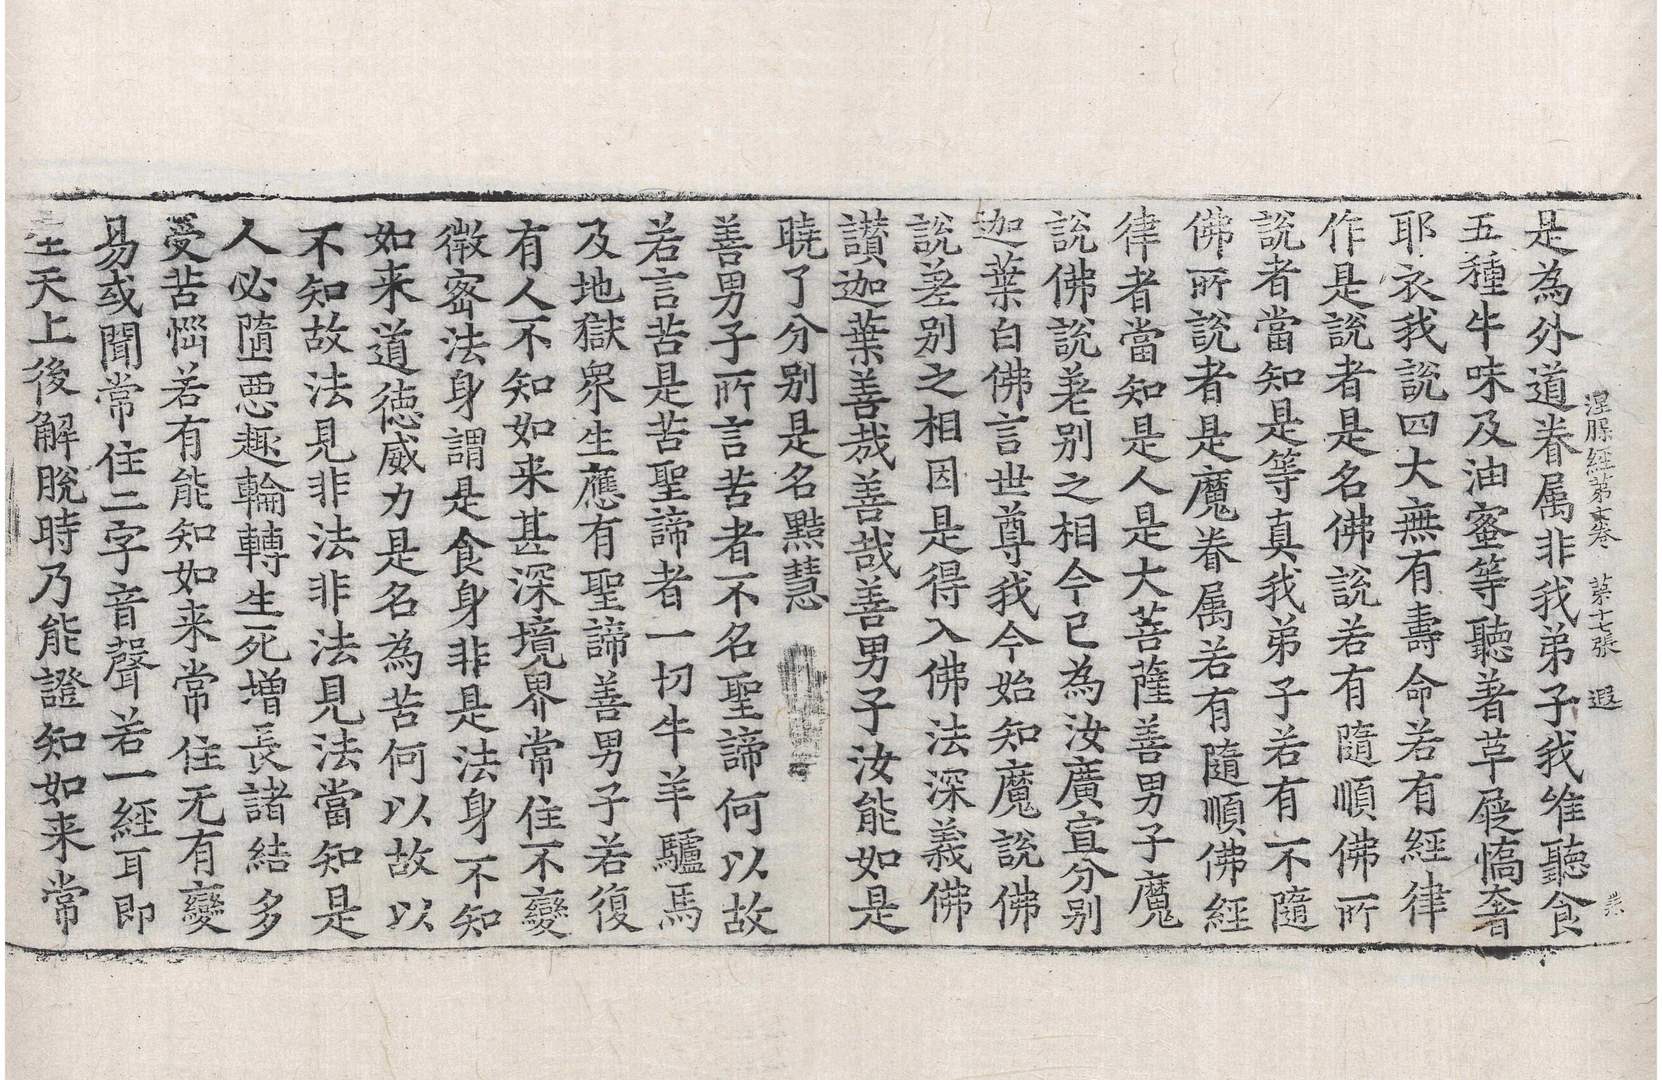 涅槃經第六卷 第十七張 遐
是為外道眷属非我弟子我唯聽食
五種牛味及油蜜等聽著草屣憍奢
耶衣我說四大無有壽命若有經律
作是說者是名佛說若有隨順佛所
說者當知是等真我弟子若有不隨
佛所說者是魔眷属若有隨順佛經
律者當知是人是大菩薩善男子魔
說佛說差別之相今已為汝廣宣分别
迦葉白佛言世尊我今始知魔說佛
說差别之相因是得入佛法深義佛
讃迦葉善哉善哉善男子汝能如是
曉了分别是名黠慧
善男子所言苦者不名聖諦何以故
若言苦是苦聖諦者一切牛羊驢馬
及地獄眾生應有聖諦善男子若復
有人不知如来甚深境界常住不變
微密法身謂是食身非是法身不知
如来道德威力是名為苦何以故以
不知故法見非法非法見法當知是
人必隨惡趣輪轉生死增長諸結多
受苦惱若有能知如来常住无有變
易或聞常住二字音聲若一經耳即
生天上後解脫時乃能證知如来常